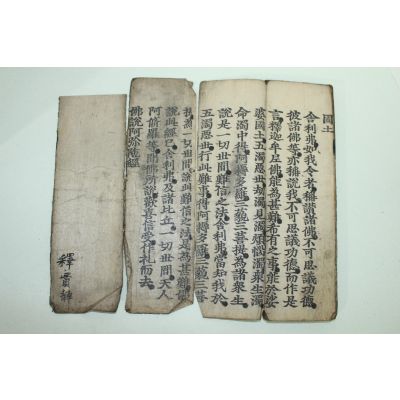 國土
舍利弗如我今者稱讚諸佛不可思議功德
彼諸佛等亦稱說我不可思議功德而作是
言釋迦牟尼佛能爲甚難希有之事能於娑
婆國土五濁惡世劫濁見濁煩惱濁衆生濁
命濁中得阿耨多羅三藐三菩提爲諸衆生
說是一切世間難信之法舍利弗當知我於
五濁惡世行此難事得阿耨多羅三藐三菩
提爲一切世間說此難信之法是爲甚難佛
說此經已舍利弗及諸比丘一切世間天人
阿修羅等聞佛所說歡喜信受作礼而去
佛說阿弥陁經
釋